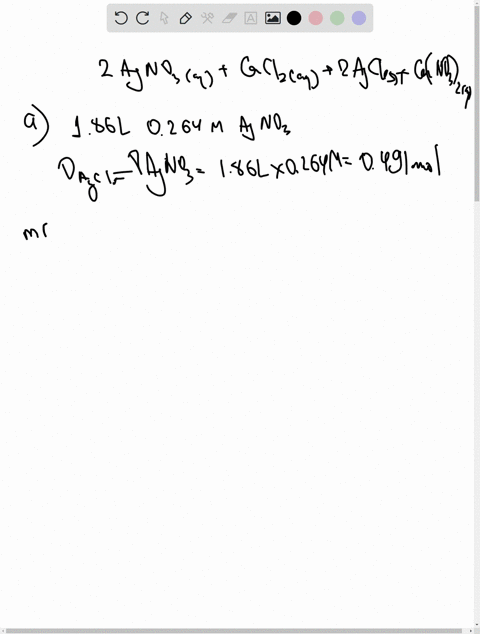 2 AgNO3(aq) + CaCl2(aq) → 2 AgCl(s) + Ca(NO3)2(aq)
a) 1.86L 0.264 M AgNO3
nAgCl = nAgNO3 = 1.86L × 0.264M = 0.491 mol
m(